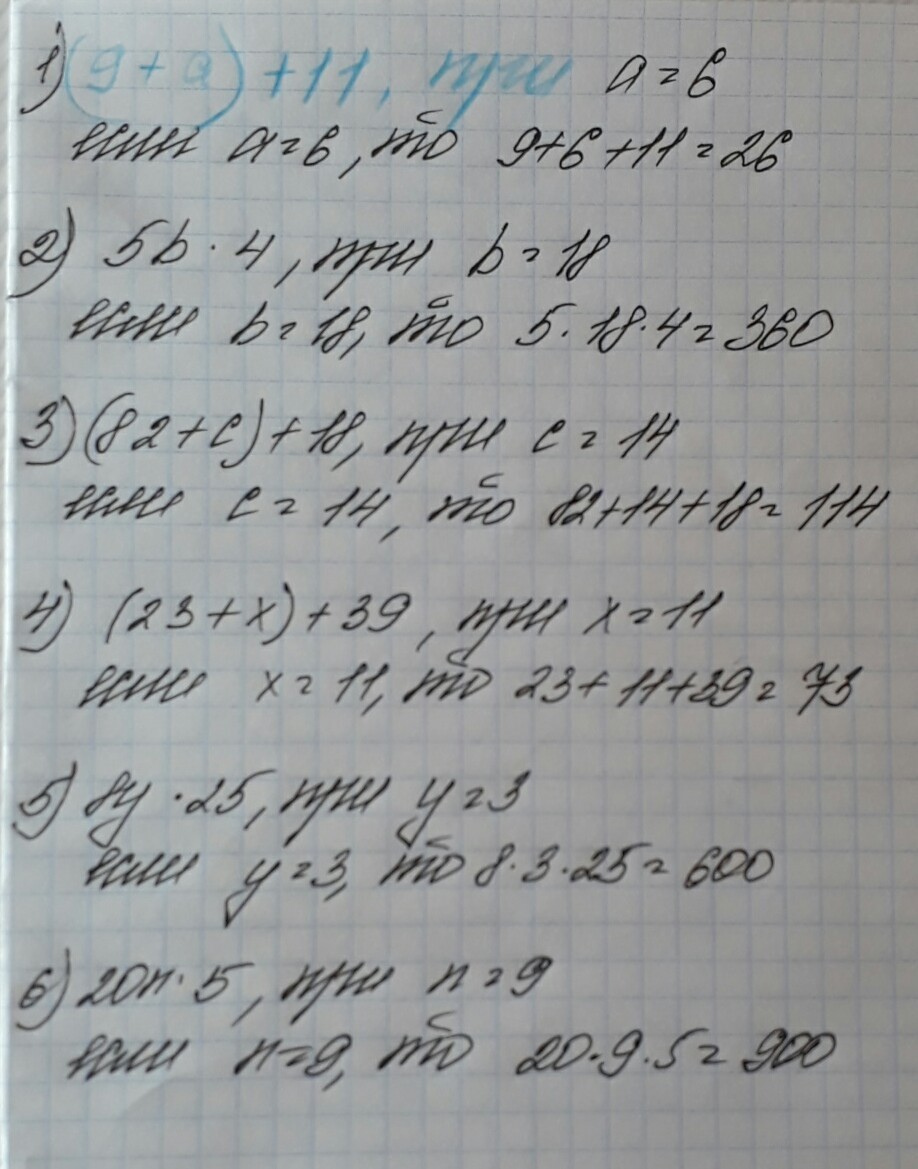 1) (9+a)+11, при a=6
если a=6, то 9+6+11=26
2) 5b·4, при b=18
если b=18, то 5·18·4=360
3) (82+c)+18, при c=14
если c=14, то 82+14+18=114
4) (23+x)+39, при x=11
если x=11, то 23+11+39=73
5) 8y·25, при y=3
если y=3, то 8·3·25=600
6) 20n·5, при n=9
если n=9, то 20·9·5=900